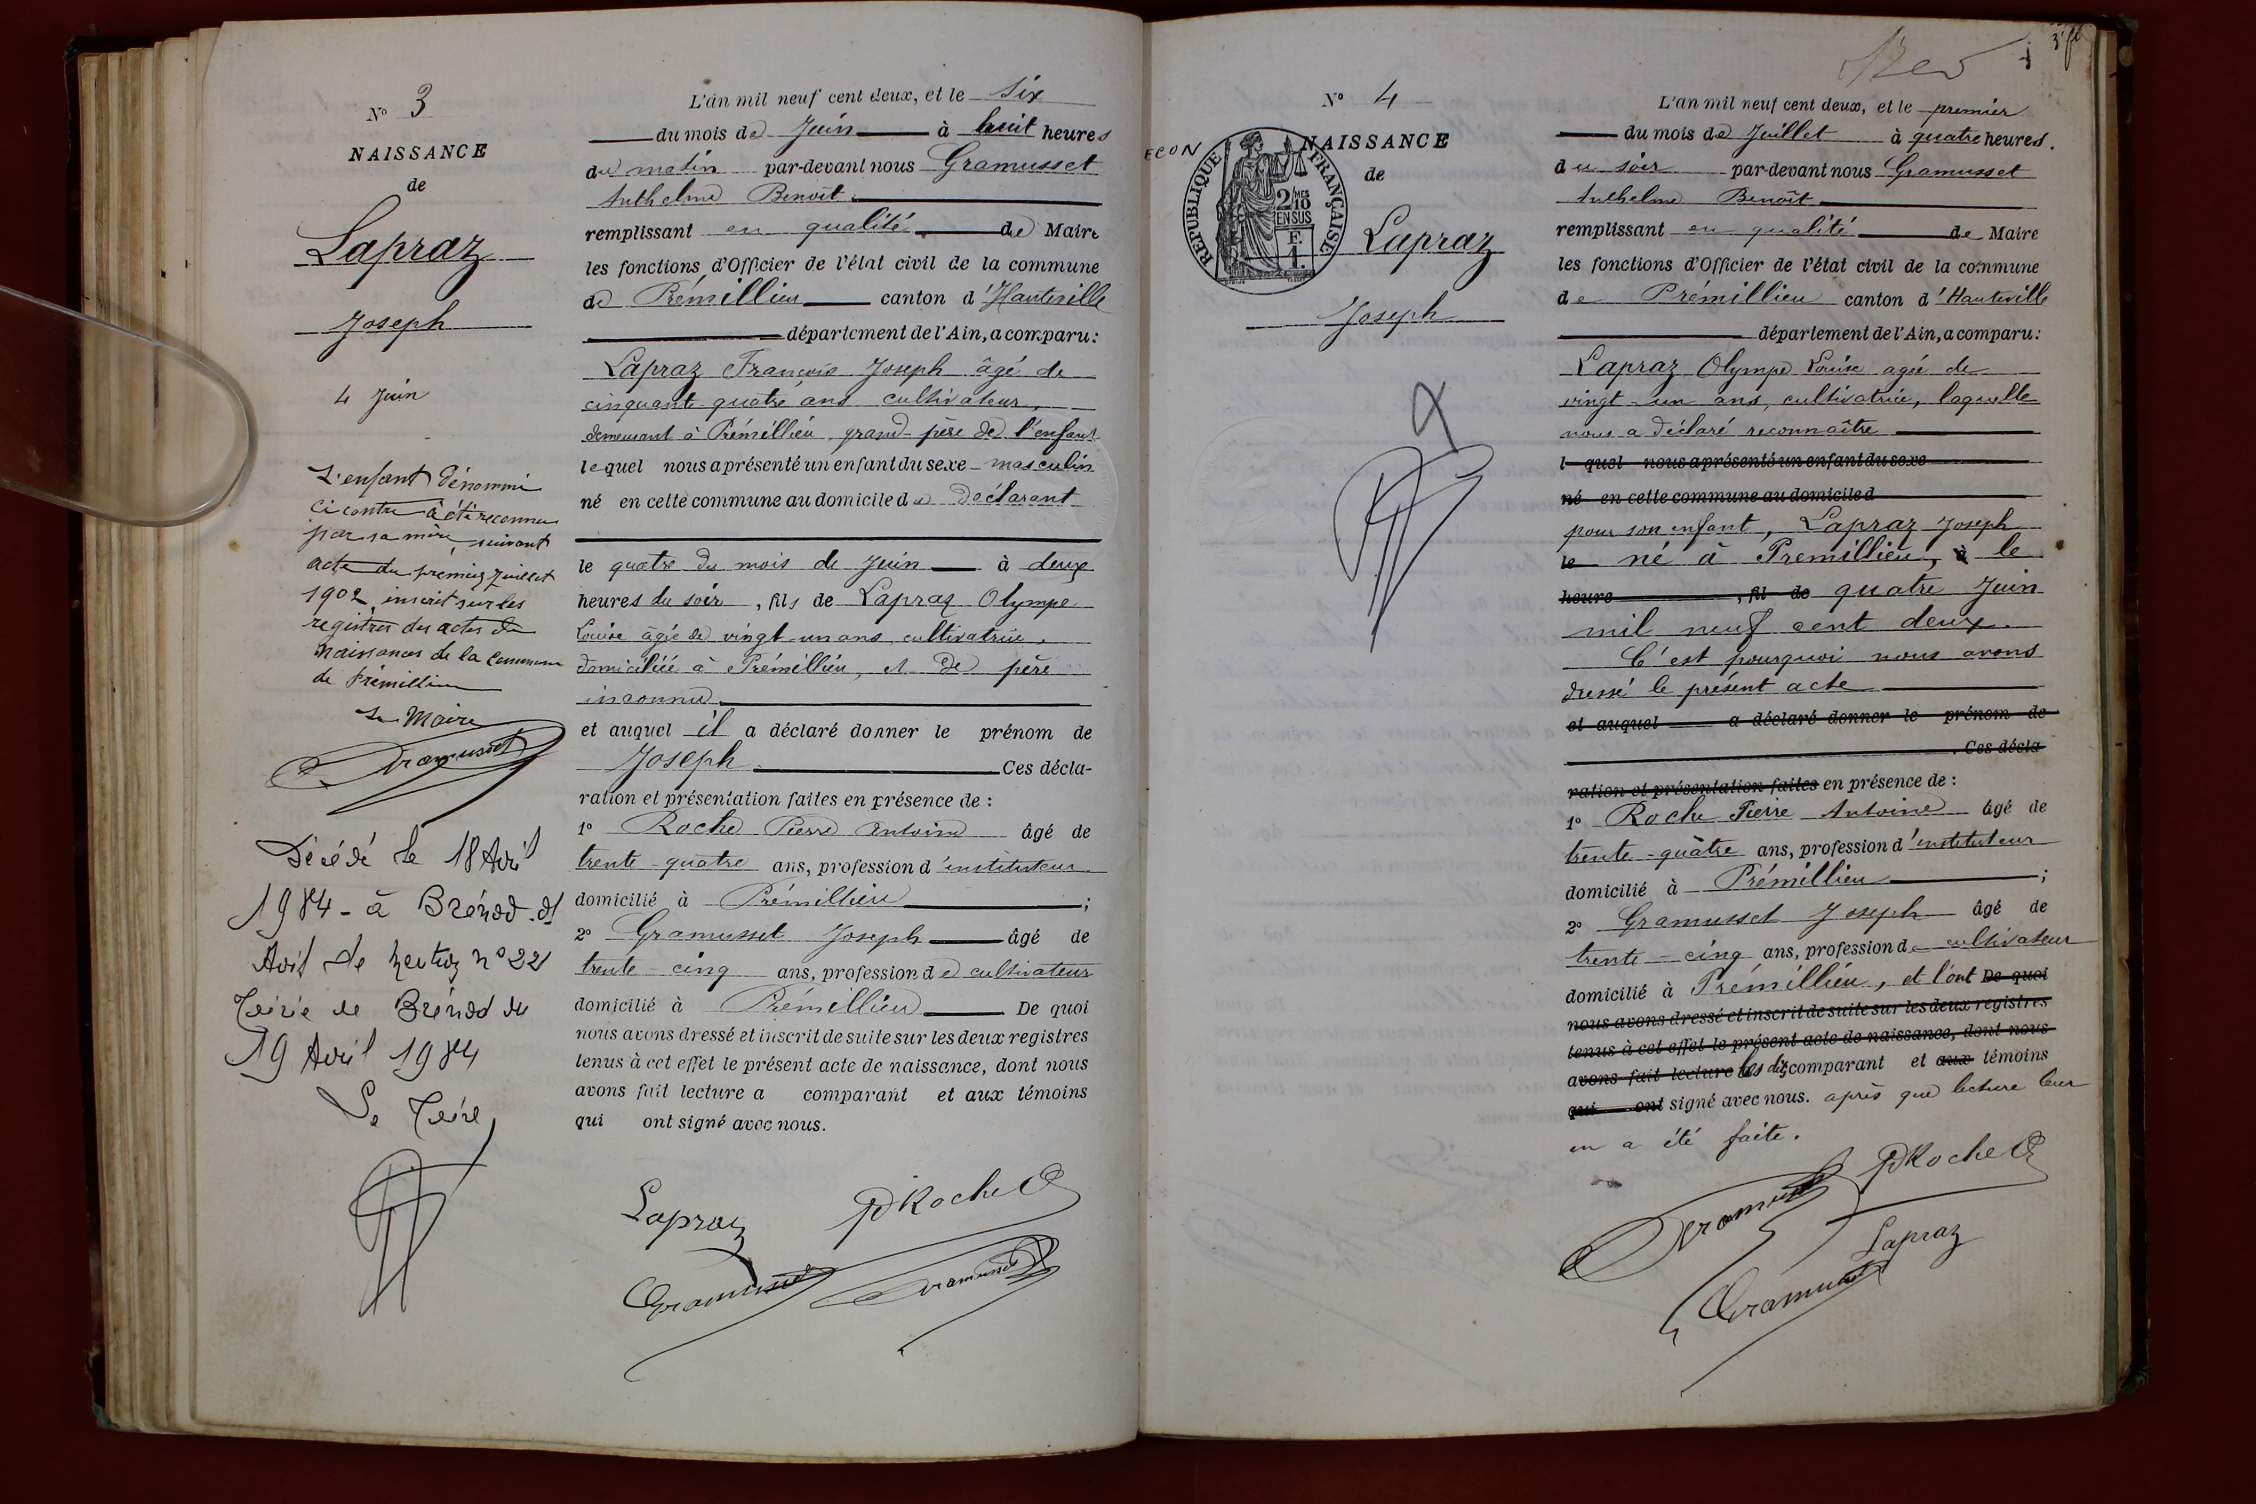 N° 3
NAISSANCE
de
Lapraz
Joseph
4 Juin
L'enfant dénommé
ci contre a été reconnu
par sa mère, suivant
acte du premier Juillet
1902, inscrit sur les
registres des actes de
naissances de la commune
de Prémillieu
Le Maire
Gramusset
Décédé le 18 Avril
1984 - à Brénod
Avis de mention n° 22
Mairie de Brénod du
19 Avril 1984
Le Maire,
L'an mil neuf cent deux, et le six
du mois de Juin à huit heures
du matin par-devant nous Gramusset
Anthelme Benoît
remplissant en qualité de Maire
les fonctions d'Officier de l'état civil de la commune
de Prémillieu canton d'Hauteville
département de l'Ain, a comparu :
Lapraz François Joseph âgé de
cinquante quatre ans cultivateur,
demeurant à Prémillieu, grand-père de l'enfant
lequel nous a présenté un enfant du sexe masculin
né en cette commune au domicile du déclarant
le quatre du mois de Juin à deux
heures du soir, fils de Lapraz Olympe
Louise âgée de vingt-un ans, cultivatrice,
domiciliée à Prémillieu, et de père
inconnu
et auquel il a déclaré donner le prénom de
Joseph. Ces décla-
ration et présentation faites en présence de :
1° Roche Pierre Antoine âgé de
trente-quatre ans, profession d'instituteur
domicilié à Prémillieu ;
2° Gramusset Joseph âgé de
trente-cinq ans, profession de cultivateur
domicilié à Prémillieu De quoi
nous avons dressé et inscrit de suite sur les deux registres
tenus à cet effet le présent acte de naissance, dont nous
avons fait lecture a comparant et aux témoins
qui ont signé avec nous.
Lapraz P Roche
Gramusset Gramusset
3
N° 4
NAISSANCE
de
RÉPUBLIQUE FRANÇAISE
2/10 MES
EN SUS
F.
1.
Lapraz
Joseph
L'an mil neuf cent deux, et le premier
du mois de Juillet à quatre heures.
du soir par-devant nous Gramusset
Anthelme Benoît
remplissant en qualité de Maire
les fonctions d'Officier de l'état civil de la commune
de Prémillieu canton d'Hauteville
département de l'Ain, a comparu :
Lapraz Olympe Louise agée de
vingt-un ans, cultivatrice, laquelle
nous a déclaré reconnaître
l quel nous a présenté un enfant du sexe
né en cette commune au domicile d
pour son enfant, Lapraz Joseph
le né à Premillieu, à le
heure , fil de quatre Juin
mil neuf cent deux.
C'est pourquoi nous avons
dressé le présent acte
et auquel a déclaré donner le prénom de
. Ces décla-
ration et présentation faites en présence de :
1° Roche Pierre Antoine âgé de
trente-quatre ans, profession d'instituteur
domicilié à Prémillieu ;
2° Gramusset Joseph âgé de
trente-cinq ans, profession de cultivateur
domicilié à Prémillieu, et l'ont De quoi
nous avons dressé et inscrit de suite sur les deux registres
tenus à cet effet le présent acte de naissance, dont nous
avons fait lecture les dits comparant et aux témoins
qui ont signé avec nous. après que lecture leur
en a été faite.
Gramusset P Roche
Lapraz
Gramusset